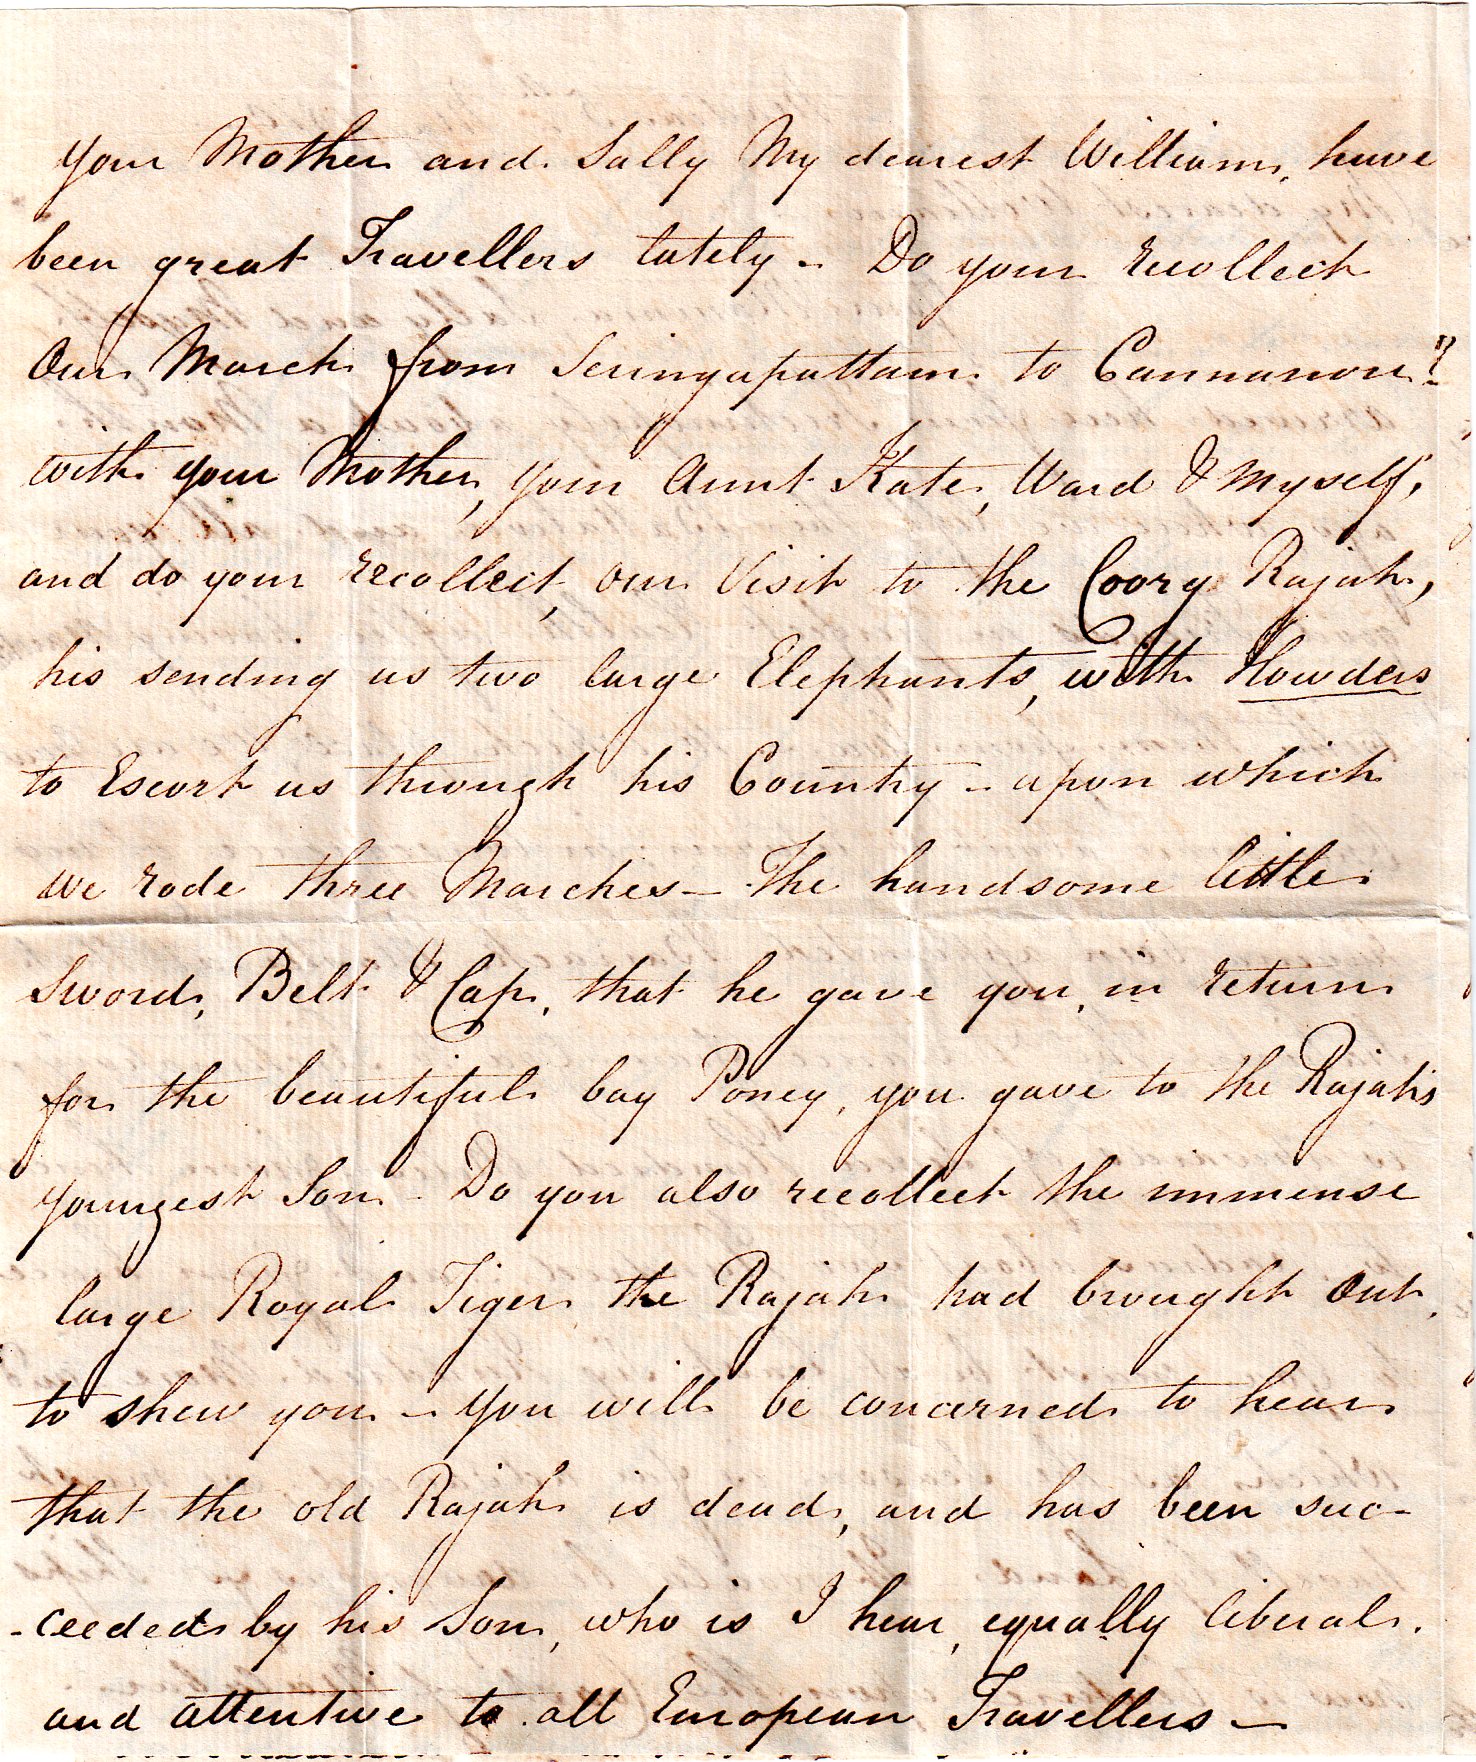 Your Mother and Sally My dearest William, have
been great Travellers lately - Do you recollect
Our March from Seringapattam to Cannanore?
with your Mother, your Aunt Kate, Ward & Myself,
and do you recollect, our Visit to the Coorg Rajah,
his sending us two large Elephants, with Howders
to Escort us through his Country - upon which
we rode three Marches - The handsome little
Sword, Belt & Cap, that he gave you, in return
for the beautiful bay Poney, you gave to the Rajah's
youngest Son - Do you also recollect the immense
large Royal Tiger the Rajah had brought Out,
to shew you - You will be concerned to hear
that the old Rajah is dead, and has been suc-
-ceeded by his Son, who is I hear, equally liberal.
and attentive to all European Travellers -